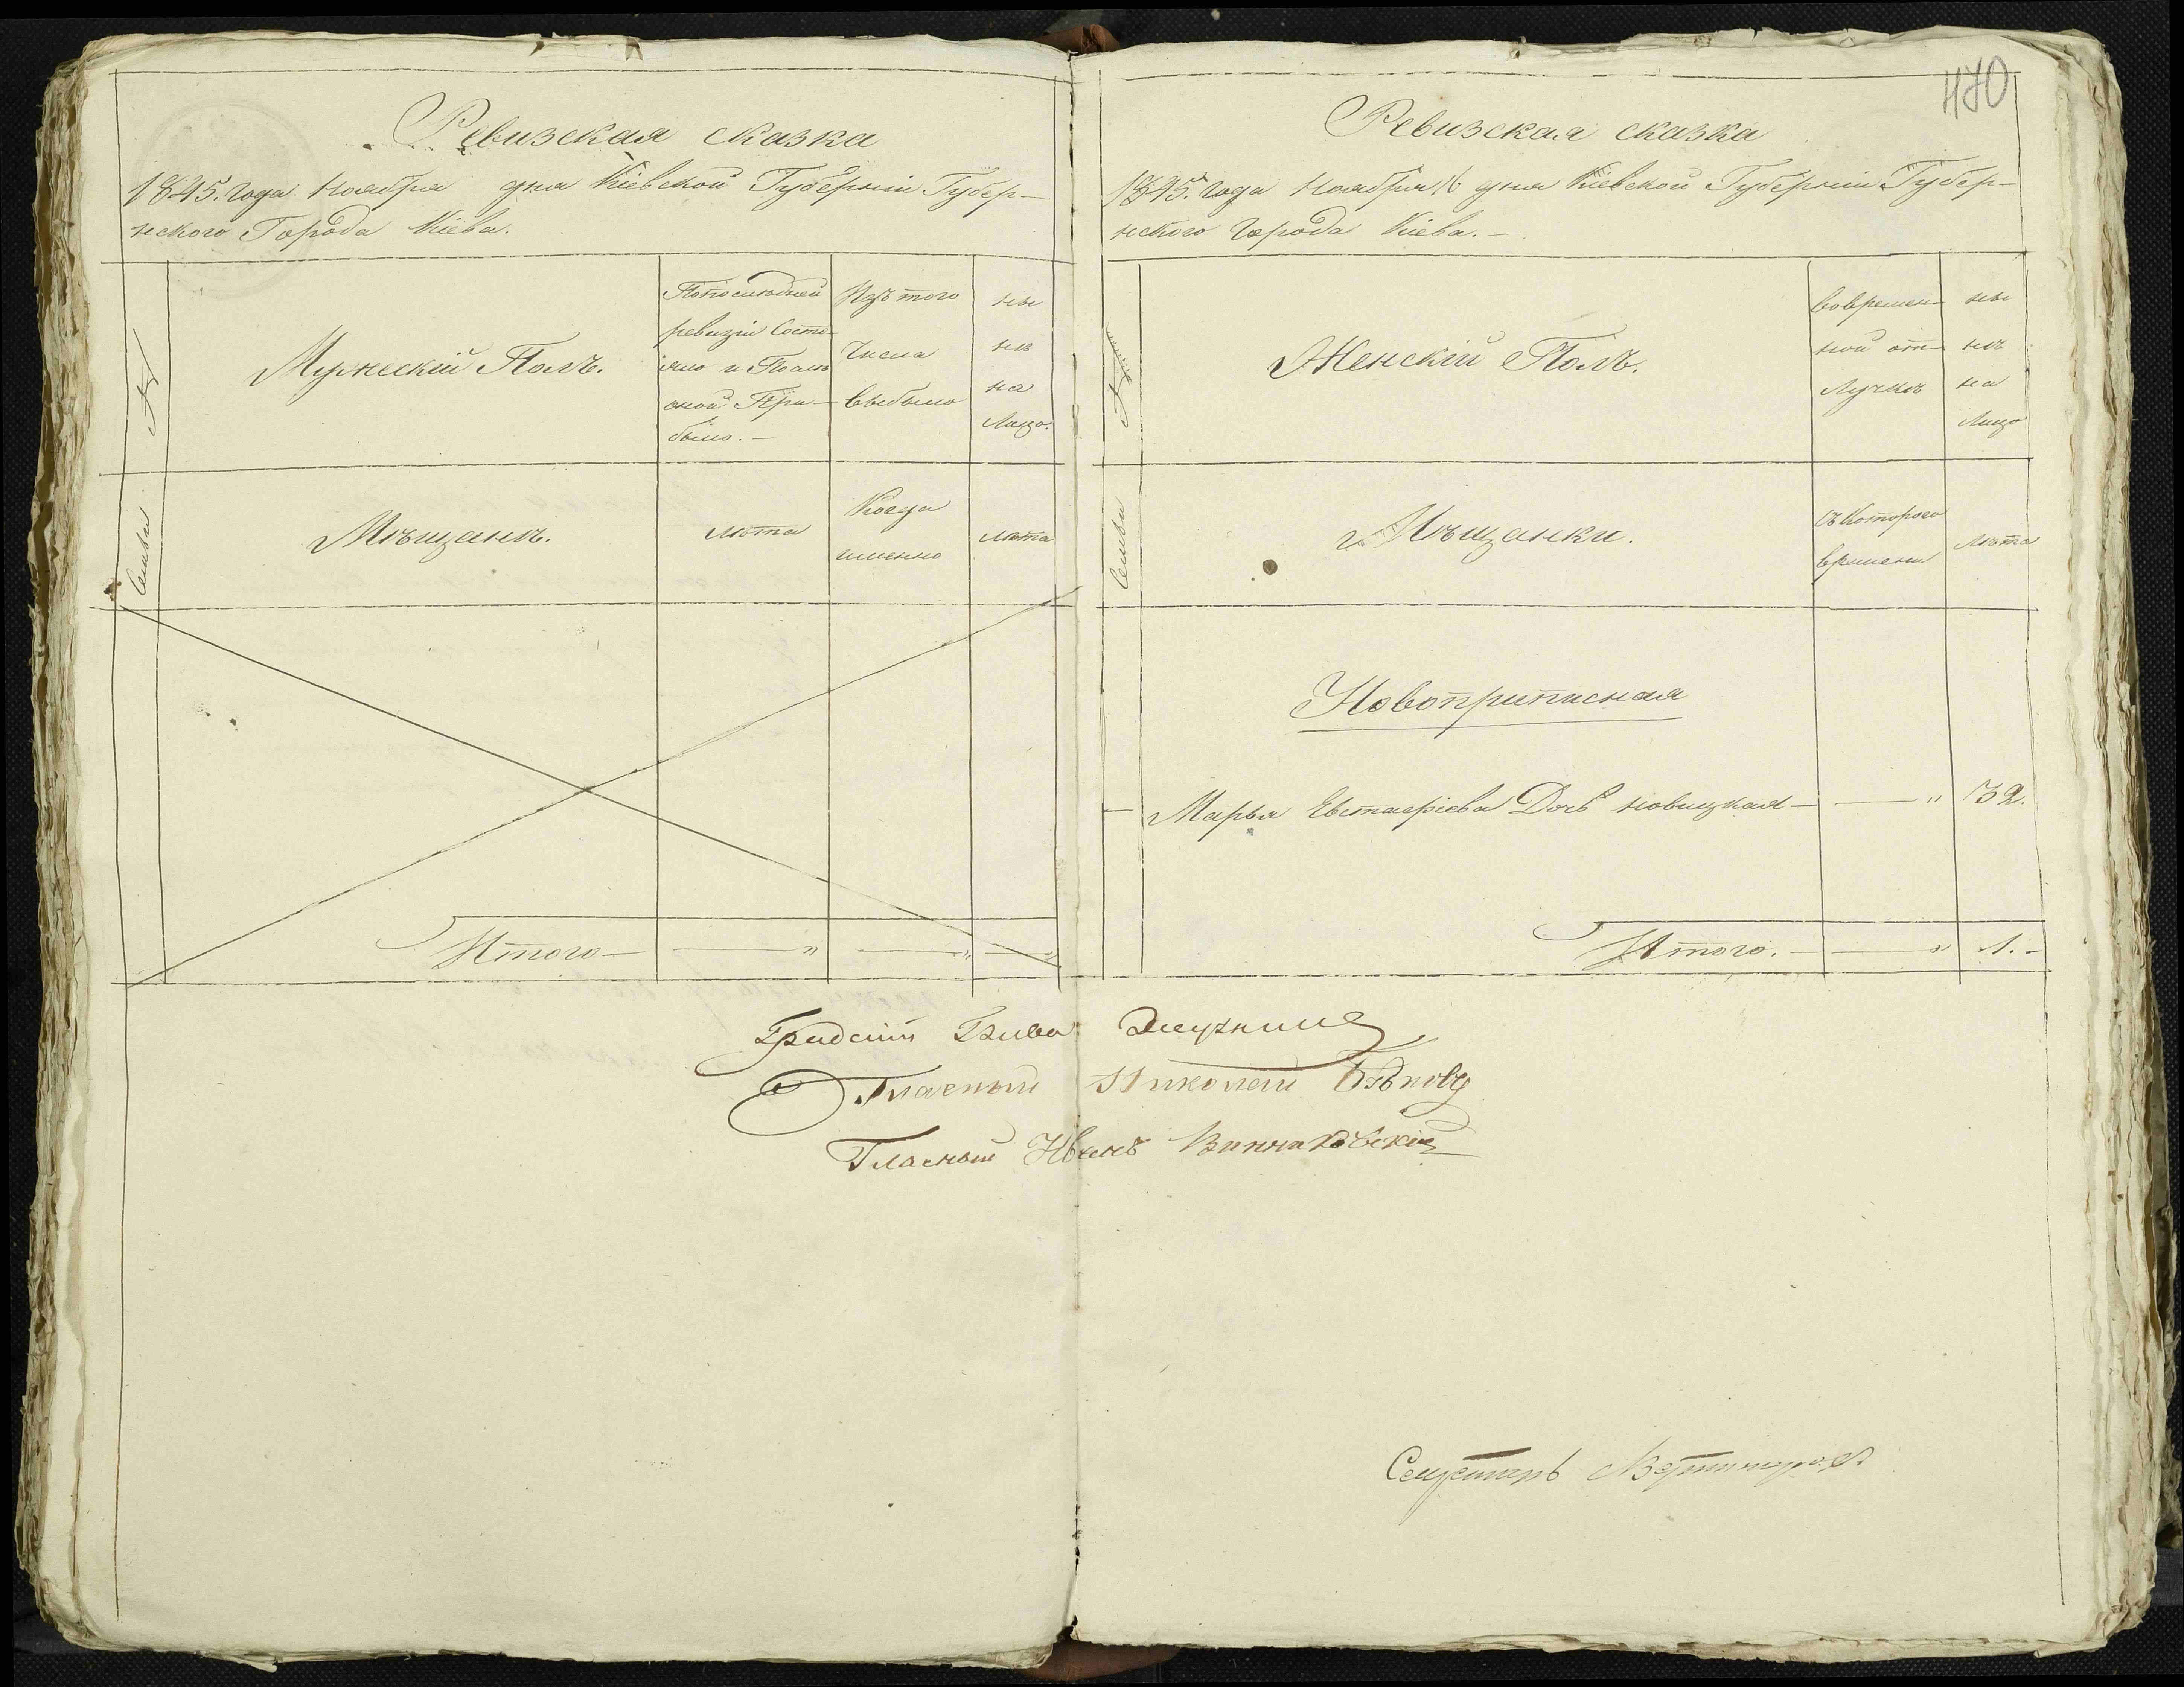 Ревизская сказка
1845. года Ноября дня Кіевской Губерніи Губер-
нского Города Кіева.
№
Мужескій Полъ.
Попослѣдней
ревизіи Состо-
яло и Послѣ
оной При-
было. —
Изъ того
Числа
выбыло
Ны
нѣ
на
Лицо.
Семьи
Мѣщанъ.
Лѣта
Когда
именно
Лѣта
Итого — — " — " — "
470
Ревизская сказка
1845. года Ноября 16 дня Кіевской Губерніи Губер-
нского города Кіева. —
Женскій Полъ.
Вовремен-
ной от-
Лучкѣ
ны
нѣ
на
Лицо
Семьи
Мѣщанки.
Съ Которого
времени
Лѣта
Новоприписная
— Марья Евстафіева Дочь Новицкая — — " 32.
Итого. — — " 1. —
Градскій Глава
Гласный Николай
Гласный Иванъ
Секретарь